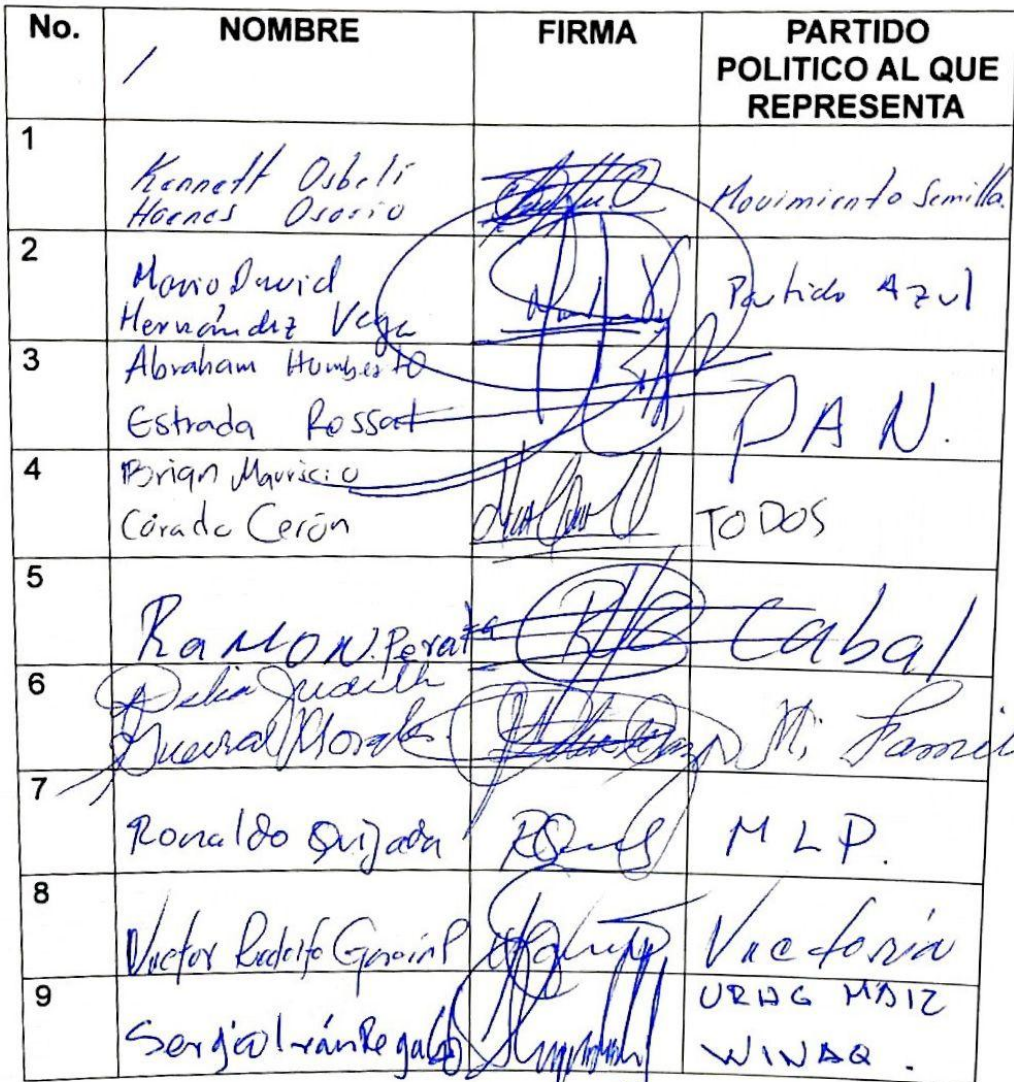 No. NOMBRE FIRMA PARTIDO
POLITICO AL QUE
REPRESENTA
1
Kennett Osbeli
Haenes Osorio
Movimiento Semilla.
2
Mario David
Hernández Vega
Partido Azul
3
Abraham Humberto
Estrada Rossat
PAN.
4
Brian Mauricio
Corado Cerón
TODOS
5
RaMON. Cabal
6
Delia Judith
Mi Famil
7
Ronaldo Quijada
MLP.
8
Victor Rodolfo
Victoria
9
Sergio Iván Regalado
URNG MAIZ
WINAQ.